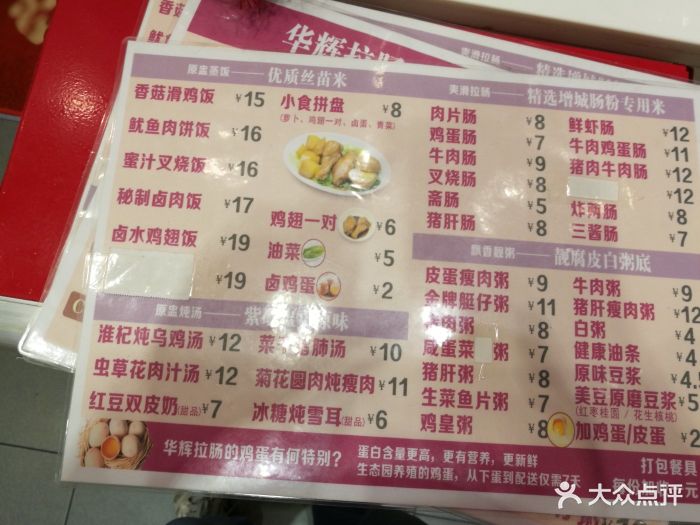 华辉拉肠
原盅蒸饭 优质丝苗米
香菇滑鸡饭 ¥15
鱿鱼肉饼饭 ¥16
蜜汁叉烧饭 ¥16
秘制卤肉饭 ¥17
卤水鸡翅饭 ¥19
¥19
小食拼盘 ¥8
(萝卜、鸡翅一对、卤蛋、青菜)
鸡翅一对 ¥6
油菜 ¥5
卤鸡蛋 ¥2
原盅炖汤
味
淮杞炖乌鸡汤 ¥12
虫草花肉汁汤 ¥12
红豆双皮奶(甜品) ¥7
肺汤 ¥10
菊花圆肉炖瘦肉 ¥11
冰糖炖雪耳(甜品) ¥6
爽滑拉肠 精选增城肠粉专用米
肉片肠 ¥8
鸡蛋肠 ¥7
牛肉肠 ¥9
叉烧肠 ¥8
斋肠 ¥5
猪肝肠 ¥8
鲜虾肠 ¥12
牛肉鸡蛋肠 ¥11
猪肉牛肉肠 ¥12
¥12
炸两肠 ¥8
三酱肠 ¥7
飘香靓粥 靓腐皮白粥底
皮蛋瘦肉粥 ¥9
金牌艇仔粥 ¥11
肉粥 ¥8
咸蛋菜 粥 ¥7
猪肝粥 ¥8
生菜鱼片粥 ¥7
鸡皇粥 ¥8
牛肉粥 ¥9
猪肝瘦肉粥 ¥12
白粥
健康油条
原味豆浆
美豆原磨豆浆 ¥5
(红枣桂圆 / 花生核桃)
加鸡蛋/皮蛋 ¥2
华辉拉肠的鸡蛋有何特别?
蛋白含量更高，更有营养，更新鲜
生态园养殖的鸡蛋，从下蛋到配送仅需7天
打包餐具
大众点评